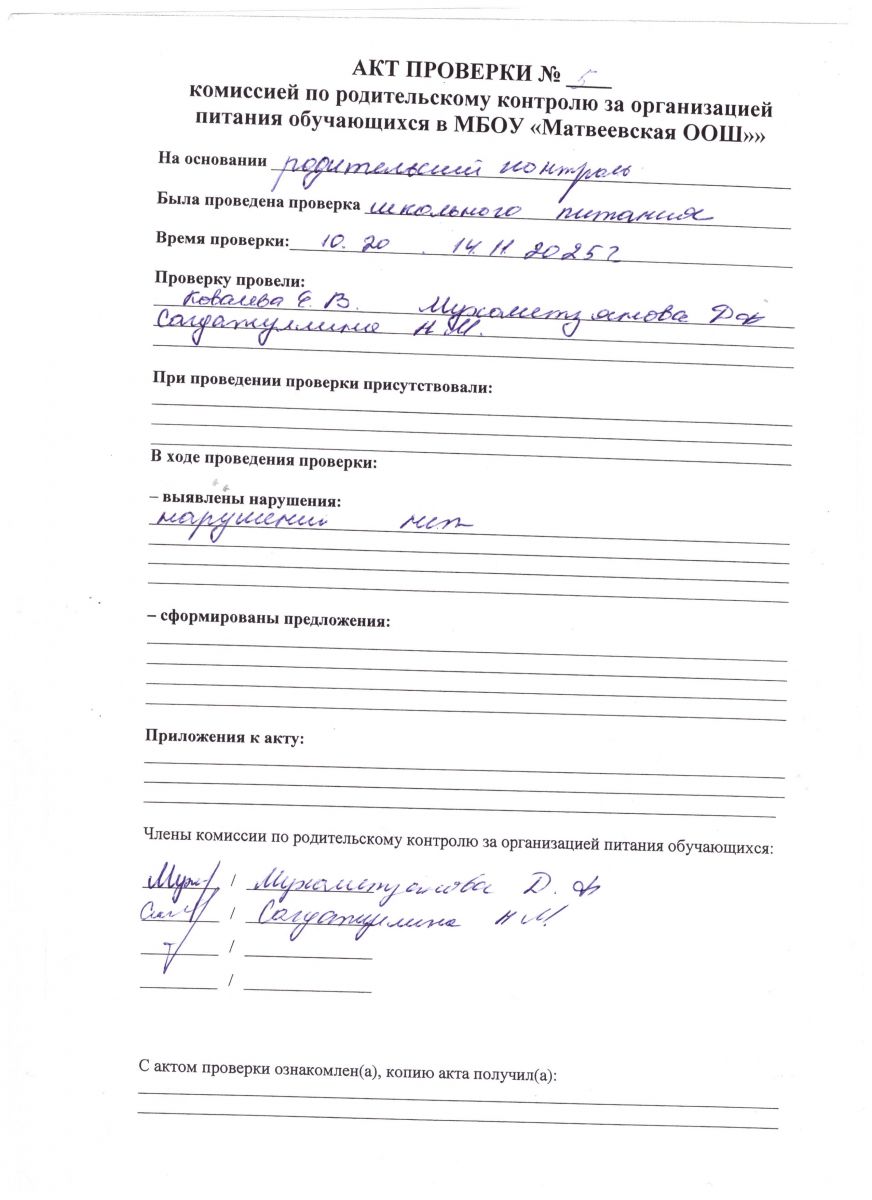 АКТ ПРОВЕРКИ № 5
комиссией по родительскому контролю за организацией
питания обучающихся в МБОУ «Матвеевская ООШ»»
На основании родительский контроль
Была проведена проверка школьного питания
Время проверки: 10.20 14.11.2025г
Проверку провели:
Ковалева Е. В. Мухаметзянова Д Ф
Сагдатуллина Н М.
При проведении проверки присутствовали:
В ходе проведения проверки:
– выявлены нарушения:
нарушений нет
– сформированы предложения:
Приложения к акту:
Члены комиссии по родительскому контролю за организацией питания обучающихся:
/ Мухаметзянова Д. Ф
/ Сагдатуллина Н М.
/
/
С актом проверки ознакомлен(а), копию акта получил(а):